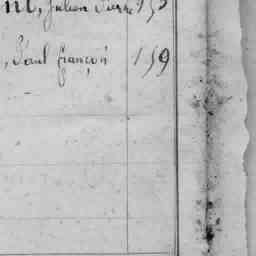 Julien Pierre
, Paul françois 159